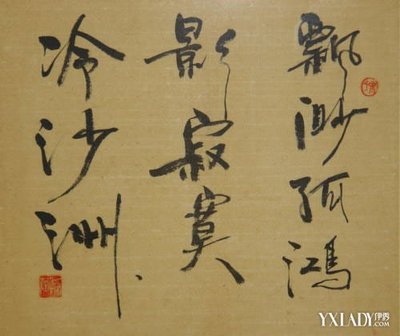 飄渺孤鴻
影寂寞
冷沙洲
YXLADY伊秀
.com